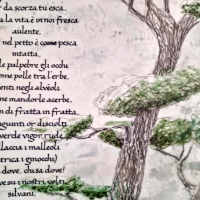 da scorza tu esca.
la vita è in noi fresca
aulente.
nel petto è come pesca
intatta.
palpebre gli occhi
come polle tra l'erbe.
denti negli alvèoli
mandorle acerbe.
di fratta in fratta.
giunti or disciolti
verde vigor rude
allaccia i mallèoli
intrica i ginocchi)
dove, chi sa dove!
su i nostri volti
silvani.